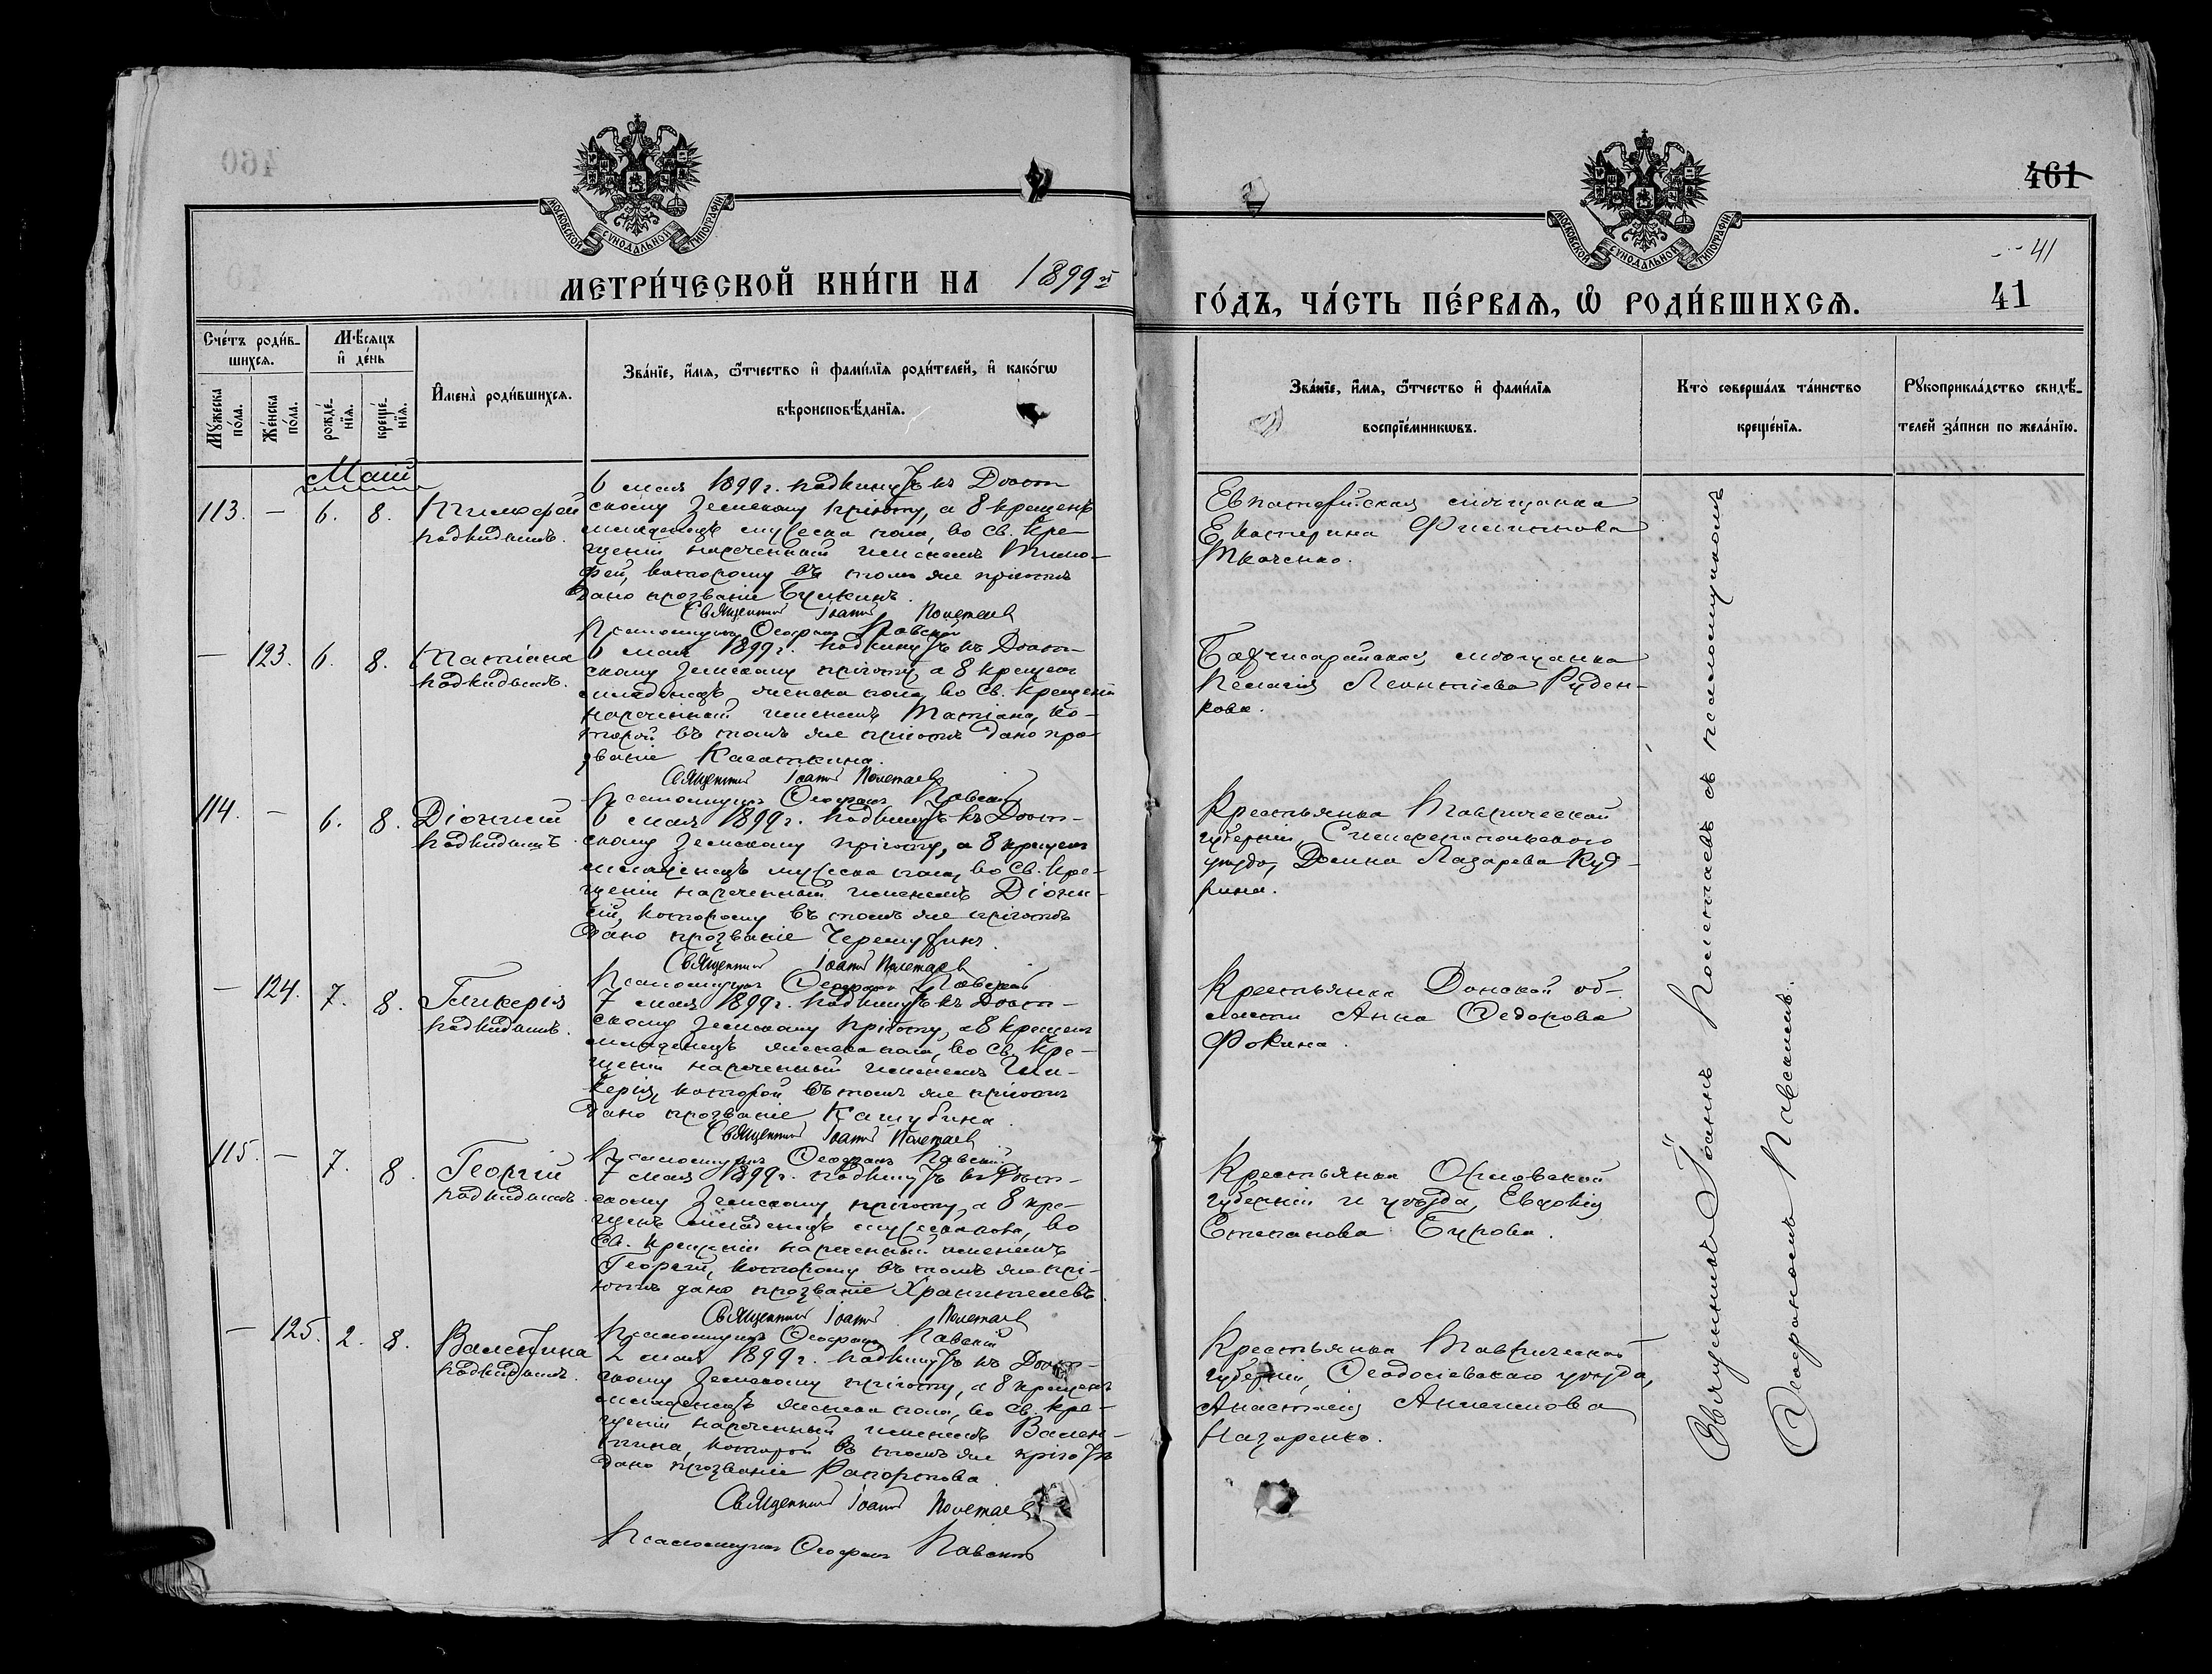 460
461
МОСКОВСКОЙ СѴНОДАЛЬНОЙ ТИПОГРАФІИ
МОСКОВСКОЙ СѴНОДАЛЬНОЙ ТИПОГРАФІИ
41
41
МЕТРИ́ЧЕСКОЙ КНИ́ГИ НА 1899й
ГО́ДЪ, ЧА́СТЬ ПЕ́РВАѦ, Ѡ҆ РОДИ́ВШИХСѦ.
Сче́тъ роди́в-
шихсѧ.
Мѣ́сѧцъ
и҆ де́нь
Мꙋ́жеска
по́ла.
Же́нска
по́ла.
рожде́-
нїѧ.
креще́-
нїѧ.
И҆мена̀ роди́вшихсѧ.
Зва́нїе, и҆́мѧ, ѻ҆́тчество и҆ фами́лїѧ роди́телей, и҆ како́гѡ
вѣроисповѣ́данїѧ.
Зва́нїе, и҆́мѧ, ѻ҆́тчество и҆ фами́лїѧ
воспрїе́мникѡвъ.
Кто̀ соверша́лъ та́инство
креще́нїѧ.
Рꙋкоприкла́дство свидѣ́-
телей за́писи по жела́нїю.
Май
113. — 6. 8. Тимофей
подкидышъ.
6 мая 1899 г. подкинутъ къ Доот-
скому Земскому пріюту, а 8 крещенъ
младенецъ мужеска пола, во Св. Кре-
щеніи нареченный именемъ Тимо-
фей, которому въ томъ же пріютѣ
дано прозваніе Бушкинъ.
Священникъ Іоаннъ Полетаевъ
Псаломщикъ Ѳеофанъ Павскій
Евпаторійская мѣщанка
Екатерина Филиппова
Ткаченко.
— 123. 6. 8. Татіана
подкидышъ.
6 мая 1899 г. подкинутъ къ Доот-
скому Земскому пріюту, а 8 крещенъ
младенецъ женска пола, во Св. Крещеніи
нареченный именемъ Татіана, ко-
торой въ томъ же пріютѣ дано про-
званіе Касаткина.
Священникъ Іоаннъ Полетаевъ
Псаломщикъ Ѳеофанъ Павскій
Бахчисарайская мѣщанка
Пелагія Леонтіева Руден-
кова.
114. — 6. 8. Діонисій
подкидышъ
6 мая 1899 г. подкинутъ къ Доот-
скому Земскому пріюту, а 8 крещенъ
младенецъ мужеска пола, во Св. Кре-
щеніи нареченный именемъ Діони-
сій, которому въ томъ же пріютѣ
дано прозваніе
Священникъ Іоаннъ Полетаевъ
Псаломщикъ Ѳеофанъ Павскій
Крестьянка Таврической
губерніи, Симферопольскаго
уѣзда, Домна Лазарева Куд-
рина.
— 124. 7. 8. Гликерія
подкидышъ.
7 мая 1899 г. подкинутъ къ Доот-
скому Земскому пріюту, а 8 крещенъ
младенецъ женска пола, во Св. Кре-
щеніи нареченный именемъ Гли-
керія, которой въ томъ же пріютѣ
дано прозваніе Кашубина.
Священникъ Іоаннъ Полетаевъ
Псаломщикъ Ѳеофанъ Павскій
Крестьянка Донской об-
ласти Анна Ѳедорова
Фокина.
115. — 7. 8. Георгій
подкидышъ.
7 мая 1899 г. подкинутъ къ Доот-
скому Земскому пріюту, а 8 кре-
щенъ младенецъ мужеска пола, во
Св. Крещеніи нареченный именемъ
Георгій, которому въ томъ же прі-
ютѣ дано прозваніе Хранителевъ.
Священникъ Іоаннъ Полетаевъ
Псаломщикъ Ѳеофанъ Павскій
Крестьянка Орловской
губерніи и уѣзда, Евдокія
Степанова Бурова.
— 125. 2. 8. Валентина
подкидышъ.
2 мая 1899 г. подкинутъ къ Доот-
скому Земскому пріюту, а 8 крещенъ
младенецъ женска пола, во Св. Кре-
щеніи нареченный именемъ Вален-
тина, которой въ томъ же пріютѣ
дано прозваніе Рапортова
Священникъ Іоаннъ Полетаевъ
Псаломщикъ Ѳеофанъ Павскій
Крестьянка Таврической
губерніи, Ѳеодосіевскаго уѣзда,
Анастасія Анисимова
Назаренко.
Священникъ Іоаннъ Полетаевъ съ псаломщикомъ
Ѳеофаномъ Павскимъ.